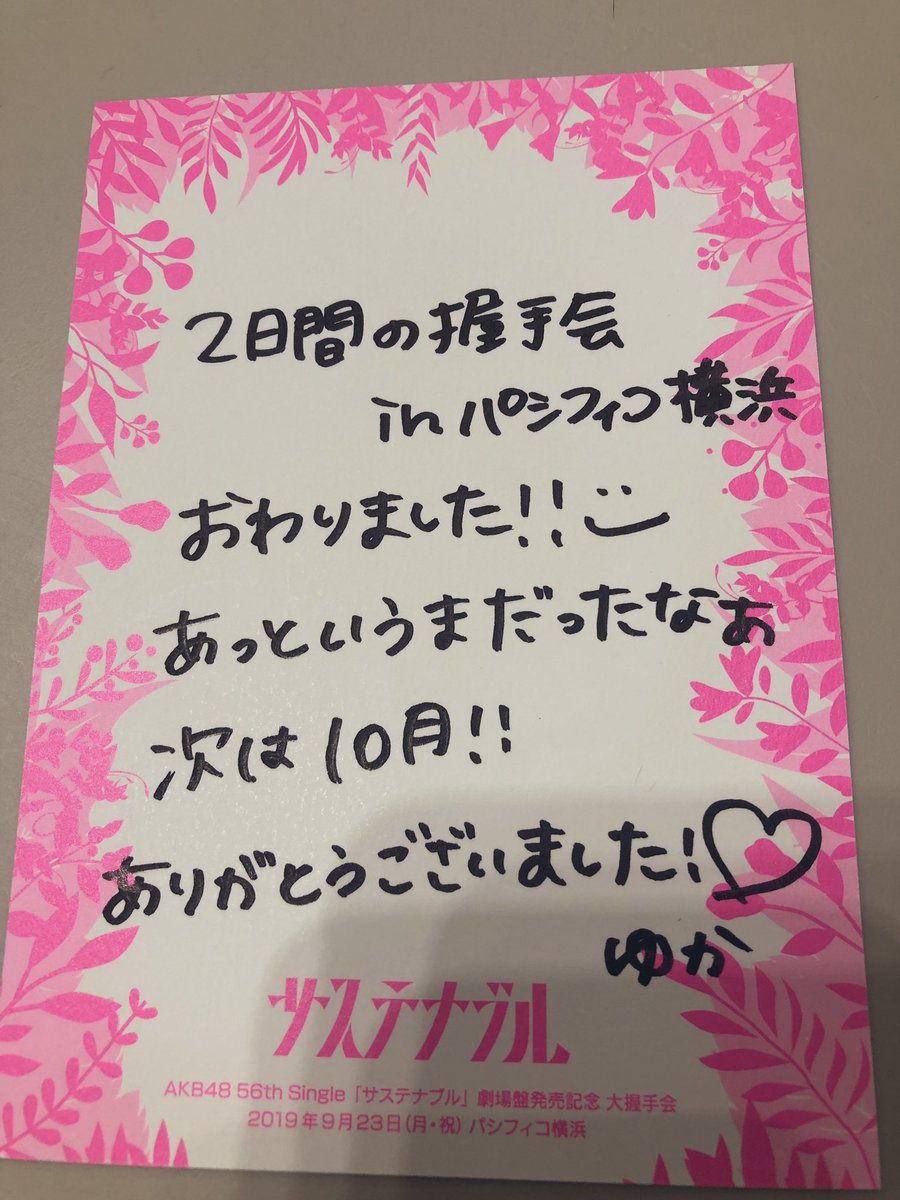 2日間の握手会
in パシフィコ横浜
おわりました!!
あっというまだったなぁ
次は10月!!
ありがとうございました!♡
ゆか
サステナブル
AKB48 56th Single「サステナブル」劇場盤発売記念 大握手会
2019年9月23日(月・祝) パシフィコ横浜